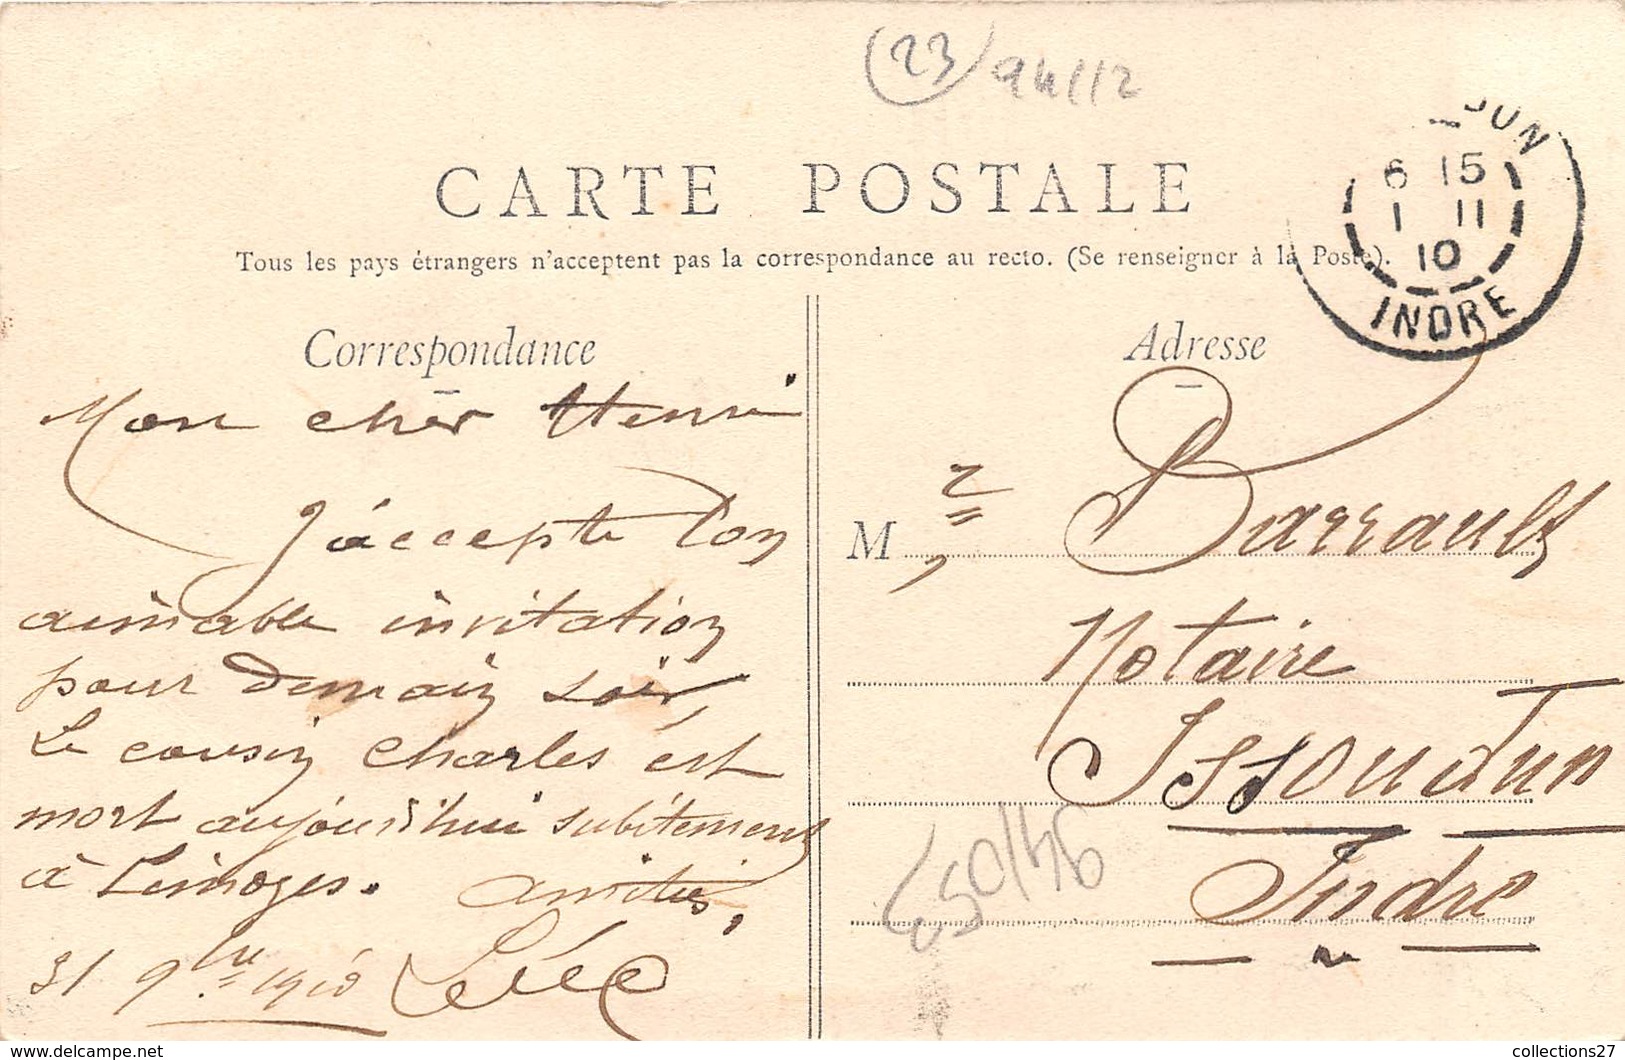 (23)
94112
CARTE POSTALE
Tous les pays étrangers n'acceptent pas la correspondance au recto. (Se renseigner à la Poste).
DUN
6 15
1 11
10
INDRE
Correspondance
Mon cher Henri
J'accepte ton
aimable invitation
pour demain soir,
Le cousin Charles est
mort aujourd'hui subitement
à Limoges. amitiés,
31 9bre 1910
Adresse
M r Barrault,
Notaire
Issoudun
Indre
collections27
www.delcampe.net